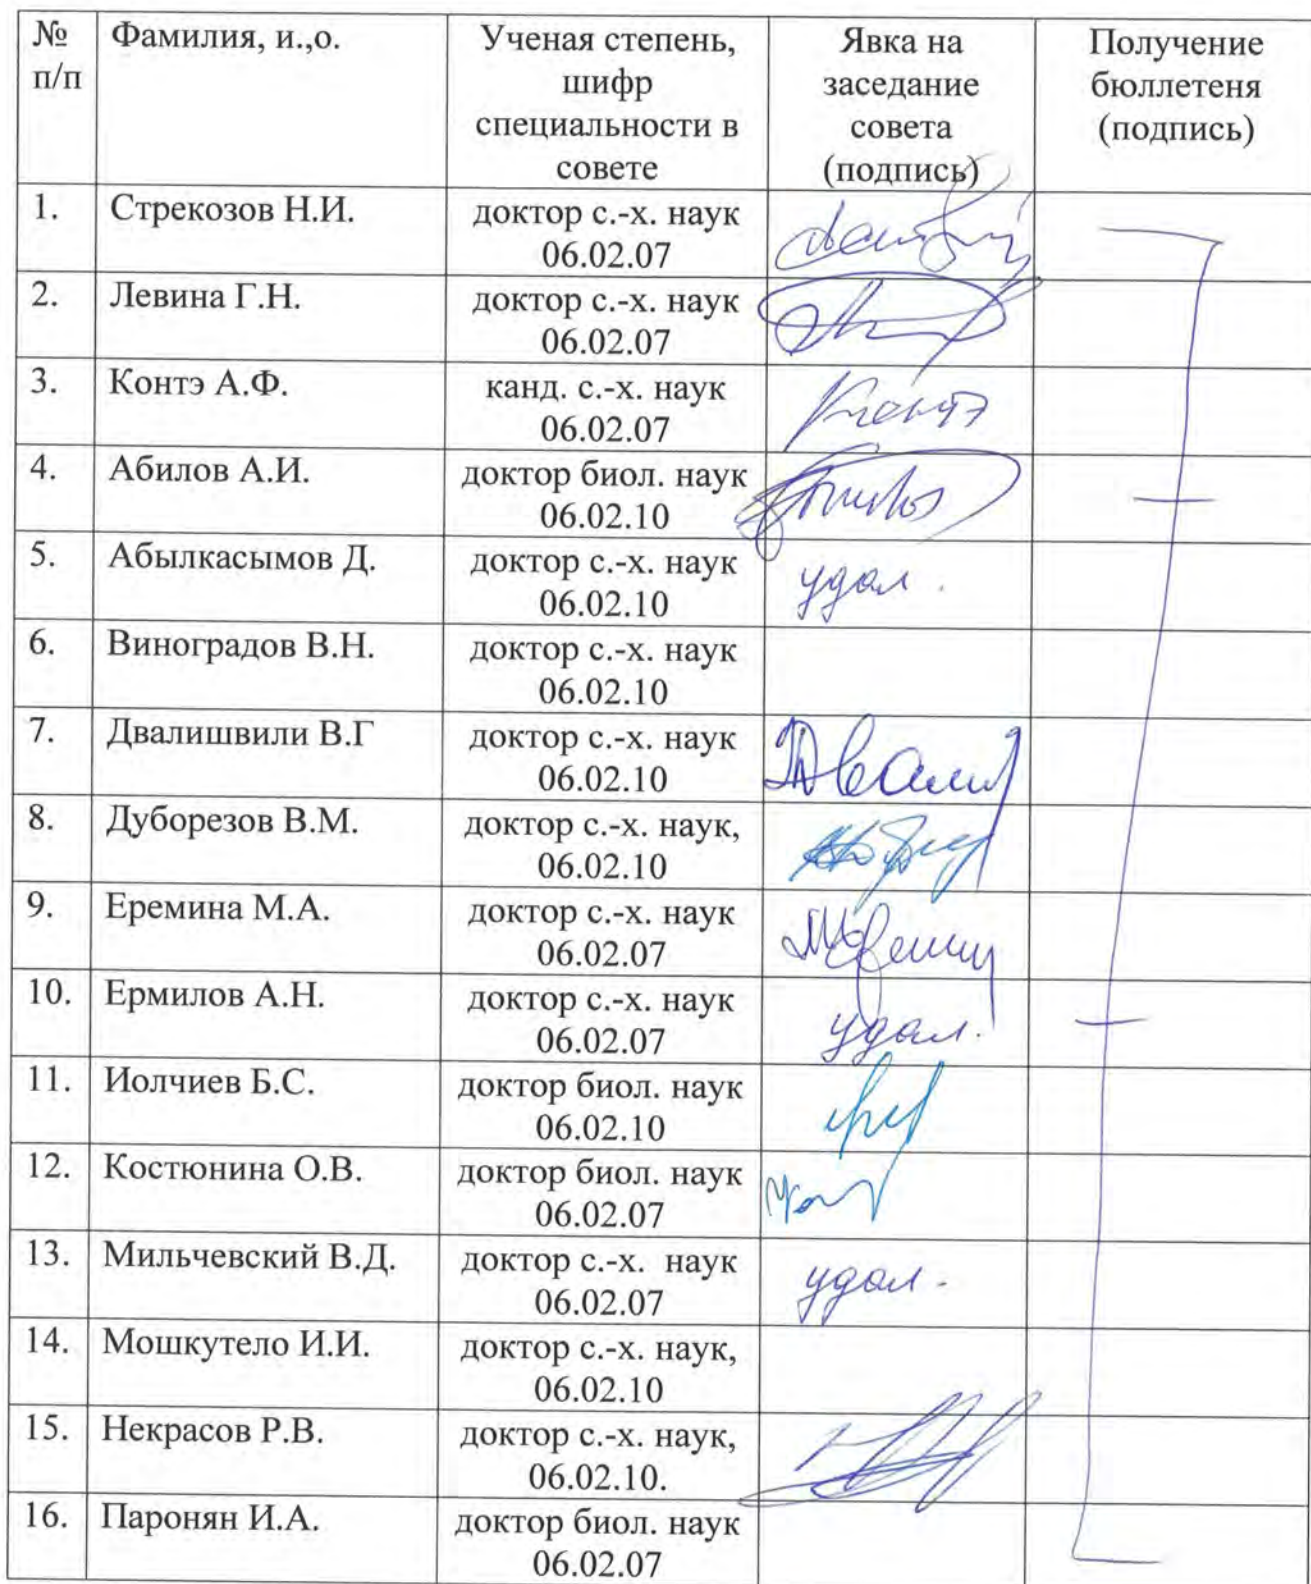 № п/п
Фамилия, и.,о.
Ученая степень,
шифр
специальности в
совете
Явка на
заседание
совета
(подпись)
Получение
бюллетеня
(подпись)
1. Стрекозов Н.И. доктор с.-х. наук
06.02.07
2. Левина Г.Н. доктор с.-х. наук
06.02.07
3. Контэ А.Ф. канд. с.-х. наук Контэ
06.02.07
4. Абилов А.И. доктор биол. наук
06.02.10
5. Абылкасымов Д. доктор с.-х. наук удал.
06.02.10
6. Виноградов В.Н. доктор с.-х. наук
06.02.10
7. Двалишвили В.Г доктор с.-х. наук
06.02.10
8. Дуборезов В.М. доктор с.-х. наук,
06.02.10
9. Еремина М.А. доктор с.-х. наук
06.02.07
10. Ермилов А.Н. доктор с.-х. наук удал.
06.02.07
11. Иолчиев Б.С. доктор биол. наук
06.02.10
12. Костюнина О.В. доктор биол. наук
06.02.07
13. Мильчевский В.Д. доктор с.-х. наук удал.
06.02.07
14. Мошкутело И.И. доктор с.-х. наук,
06.02.10
15. Некрасов Р.В. доктор с.-х. наук,
06.02.10.
16. Паронян И.А. доктор биол. наук
06.02.07